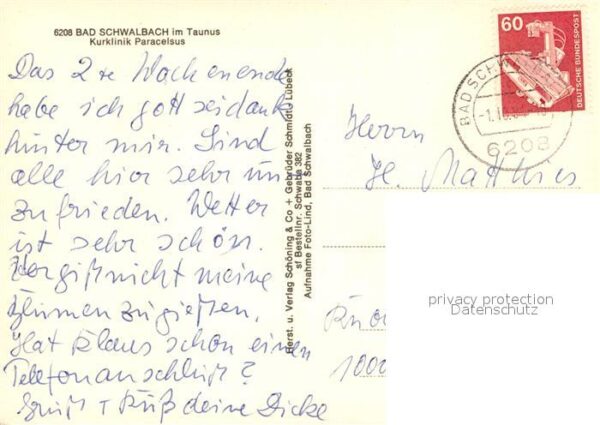 6208 BAD SCHWALBACH im Taunus
Kurklinik Paracelsus
Das 2te Wochenende
habe ich gott sei dank
hinter mir. Sind
alle hier sehr un
zufrieden. Wetter
ist sehr schön.
Vergißt nicht meine
Blumen zu gießen.
Hat Klaus schon einen
Telefonanschluß?
Gruß + Kuß deine Dicke
Herst. u. Verlag Schöning & Co + Gebrüder Schmidt, Lübeck
sf Bestellnr. Schwaba 382
Aufnahme Foto-Lind, Bad Schwalbach
60
DEUTSCHE BUNDESPOST
BAD SCHW
6208
Herrn
H. Matthies
1000
privacy protection
Datenschutz